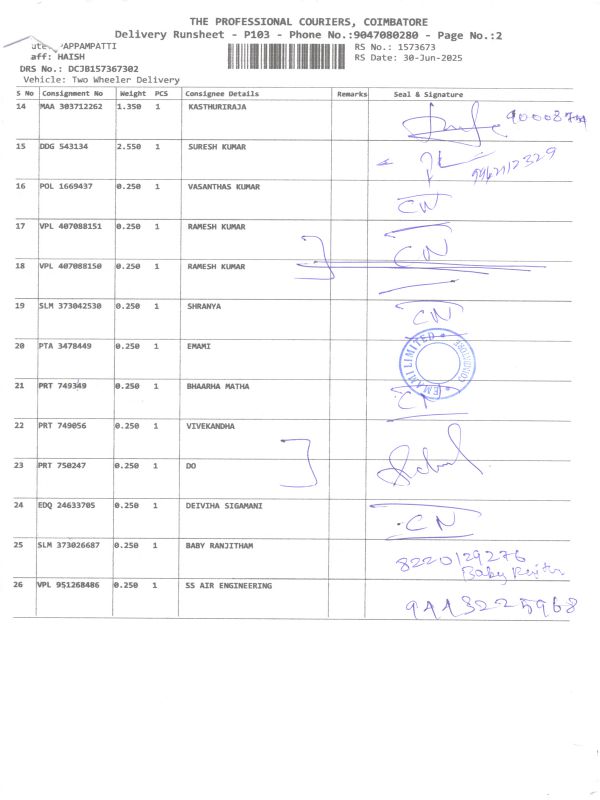 THE PROFESSIONAL COURIERS, COIMBATORE
Delivery Runsheet - P103 - Phone No.:9047080280 - Page No.:2
APPAMPATTI RS No.: 1573673
aff: HAISH RS Date: 30-Jun-2025
DRS No.: DCJB157367302
Vehicle: Two Wheeler Delivery
S No Consignment No Weight PCS Consignee Details Remarks Seal & Signature
14 MAA 303712262 1.350 1 KASTHURIRAJA
15 DDG 543134 2.550 1 SURESH KUMAR
16 POL 1669437 0.250 1 VASANTHAS KUMAR CN
17 VPL 407088151 0.250 1 RAMESH KUMAR CN
18 VPL 407088150 0.250 1 RAMESH KUMAR
19 SLM 373042530 0.250 1 SHRANYA CN
20 PTA 3478449 0.250 1 EMAMI EMAMI LIMITED COIMBATORE
21 PRT 749349 0.250 1 BHAARHA MATHA CN
22 PRT 749056 0.250 1 VIVEKANDHA
23 PRT 750247 0.250 1 DO
24 EDQ 24633705 0.250 1 DEIVIHA SIGAMANI CN
25 SLM 373026687 0.250 1 BABY RANJITHAM 8220129276
Baby
26 VPL 951268486 0.250 1 SS AIR ENGINEERING